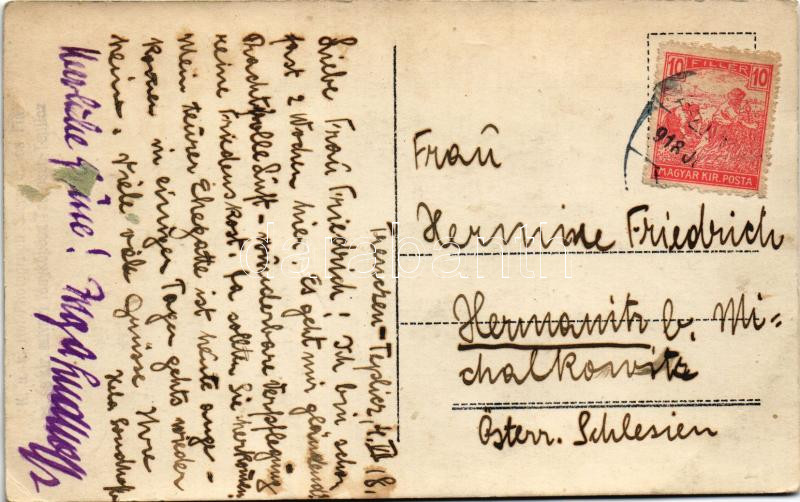 Trencsén-Teplicz, 4. VII 18.
Liebe Frau Friedrich! Ich bin schon
fast 2 Wochen hier. Es geht mir glänzend.
Prachtvolle Luft - wunderbare Verpflegung -
reine Friedenskost. Da sollten Sie herkommen!
Mein teurer Ehegatte ist heute ange-
kommen in einigen Tagen gehts wieder
heim. Viele viele Grüsse Ihre
Herzliche Grüße!
Frau
Hermine Friedrich
Hermanitz b. Mi-
chalkowitz
Österr. Schlesien
10 FILLER 10
918 J
MAGYAR KIR. POSTA
darabanth